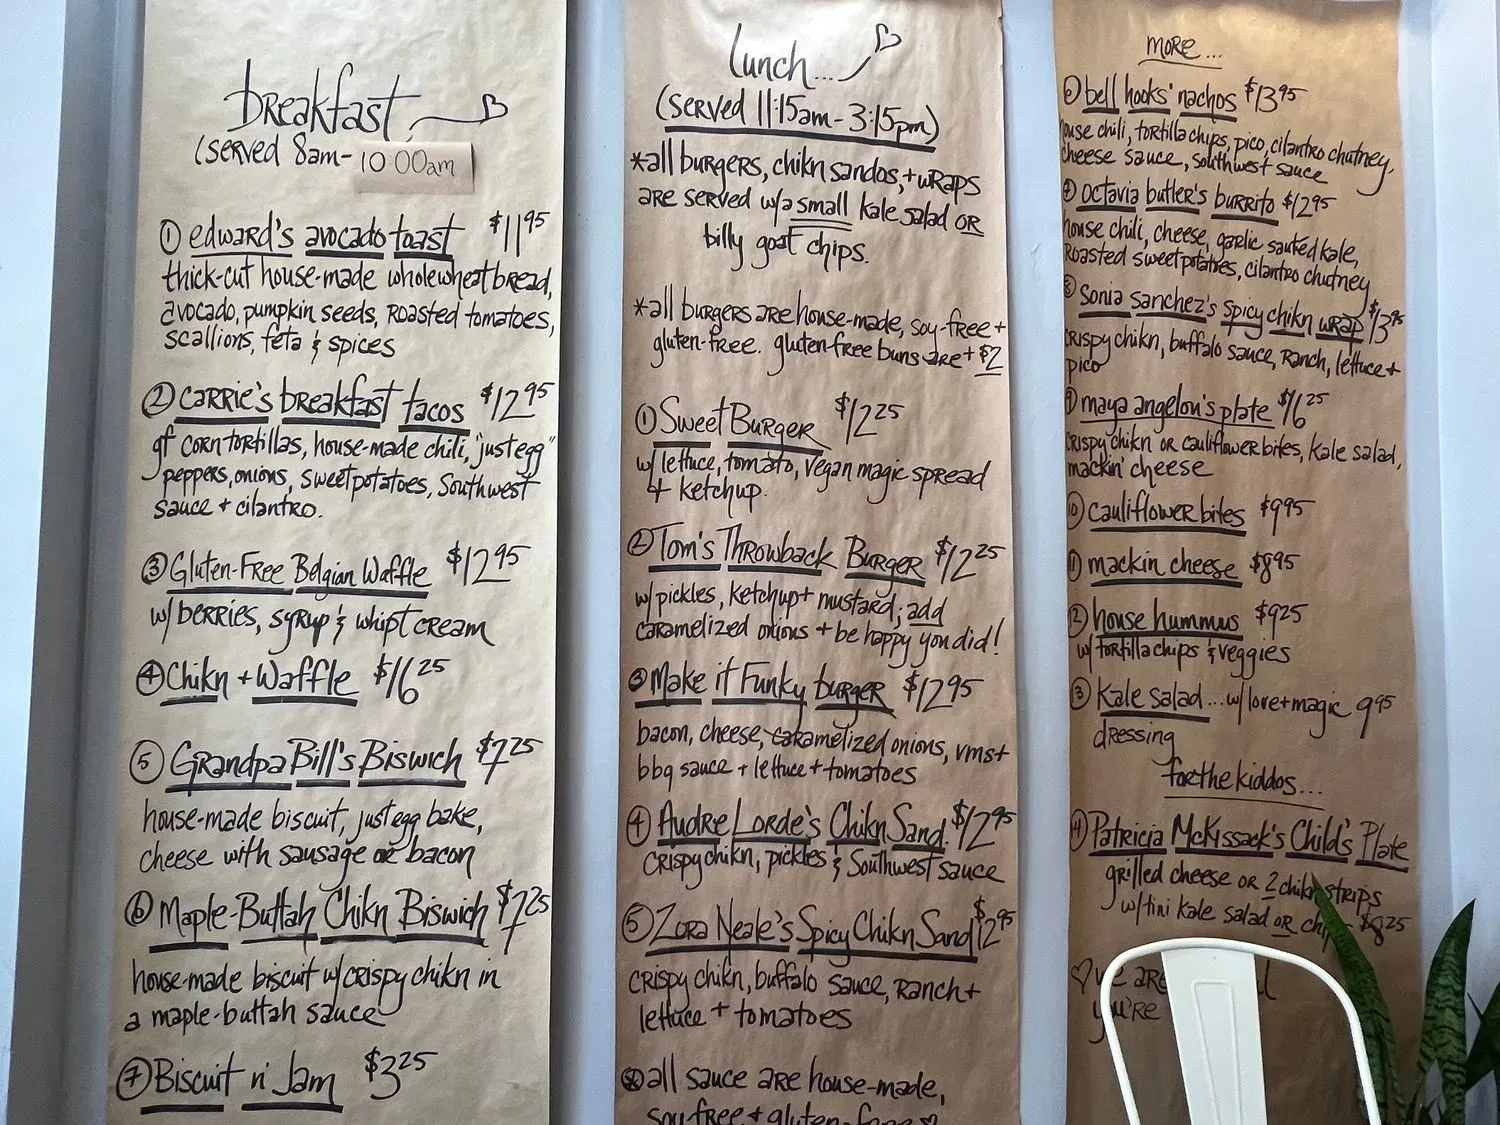 breakfast
(served 8am- 10:00am
① edward's avocado toast $11.95
thick-cut house-made wholewheat bread,
avocado, pumpkin seeds, roasted tomatoes,
scallions, feta & spices
② Carrie's breakfast tacos $12.95
gf corn tortillas, house-made chili, "just egg"
peppers, onions, sweet potatoes, Southwest
sauce + cilantro.
③ Gluten-Free Belgian Waffle $12.95
w/ berries, syrup & whipt cream
④ Chikn + Waffle $16.25
⑤ Grandpa Bill's Biswich $7.25
house-made biscuit, just egg bake,
cheese with sausage or bacon
⑥ Maple-Buttah Chikn Biswich $7.25
house-made biscuit w/ crispy chikn in
a maple-buttah sauce
⑦ Biscuit n' Jam $3.25
lunch...
(served 11:15am- 3:15pm)
*all burgers, chikn sandos, + wraps
are served w/a small kale salad OR
billy goat chips.
*all burgers are house-made, soy-free +
gluten-free. gluten-free buns are + $2
① Sweet Burger $12.25
w/ lettuce, tomato, vegan magic spread
+ ketchup.
② Tom's Throwback Burger $12.25
w/ pickles, ketchup + mustard; add
caramelized onions + be happy you did!
③ Make it Funky burger $12.95
bacon, cheese, caramelized onions, vms +
bbq sauce + lettuce + tomatoes
④ Audre Lorde's Chikn Sand. $12.95
crispy chikn, pickles & Southwest sauce
⑤ Zora Neale's Spicy Chikn Sand $12.95
crispy chikn, buffalo sauce, ranch +
lettuce + tomatoes
all sauce are house-made,
soy-free + gluten-free
more...
bell hooks' nachos $13.95
house chili, tortilla chips, pico, cilantro chutney,
cheese sauce, southwest sauce
⑦ octavia butler's burrito $12.95
house chili, cheese, garlic sauted kale,
roasted sweet potatoes, cilantro chutney
⑧ Sonia Sanchez's spicy chikn wrap $13.95
crispy chikn, buffalo sauce, ranch, lettuce +
pico
⑨ maya angelou's plate $16.25
crispy chikn or cauliflower bites, kale salad,
mackin' cheese
⑩ cauliflower bites $9.95
⑪ mackin cheese $8.95
⑫ house hummus $9.25
w/ tortilla chips & veggies
⑬ Kale salad... w/ love + magic 9.95
dressing
for the kiddos...
⑭ Patricia McKissack's Child's Plate
grilled cheese or 2 chikn strips
w/ tini kale salad OR $8.25
we are
you're